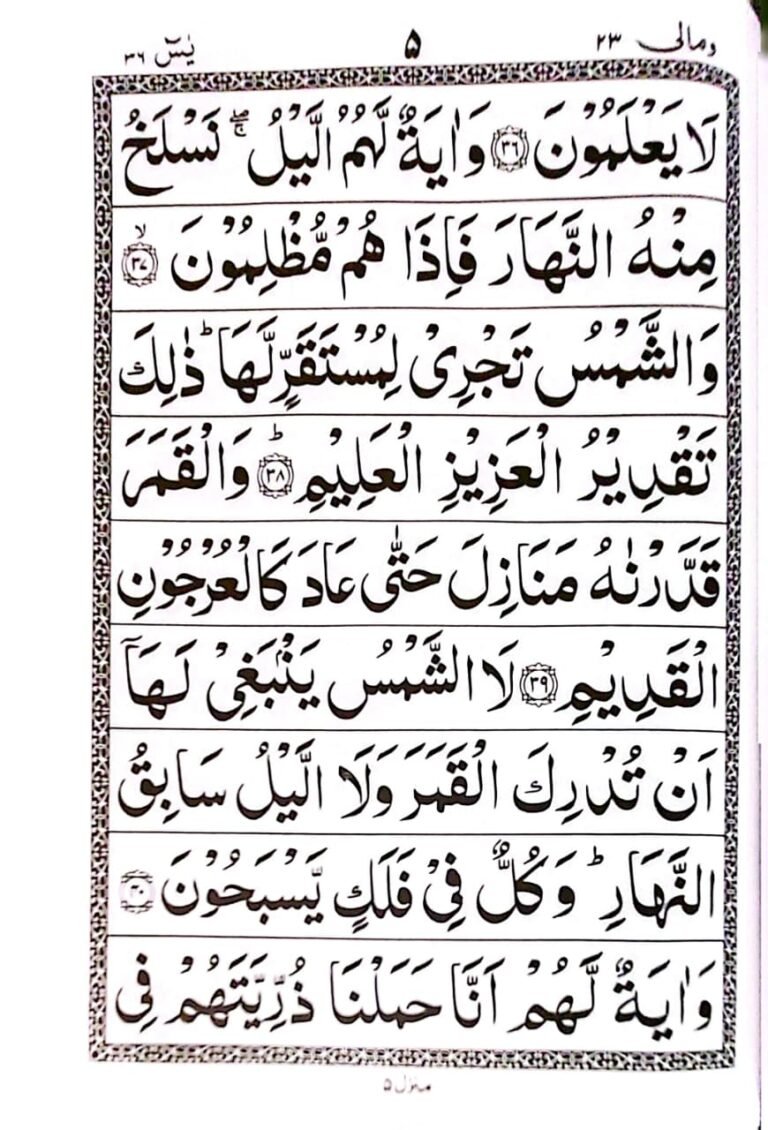 ومالی ۲۳ ۵ یٰسٓ ۳۶
لَا یَعْلَمُوْنَ ۝۳۶ وَاٰیَةٌ لَّهُمُ الَّیْلُ ۖۚ نَسْلَخُ
مِنْهُ النَّهَارَ فَاِذَا هُمْ مُّظْلِمُوْنَ ۝۳۷ۙ
وَالشَّمْسُ تَجْرِیْ لِمُسْتَقَرٍّ لَّهَا ؕ ذٰلِكَ
تَقْدِیْرُ الْعَزِیْزِ الْعَلِیْمِ ۝۳۸ؕ وَالْقَمَرَ
قَدَّرْنٰهُ مَنَازِلَ حَتّٰی عَادَ كَالْعُرْجُوْنِ
الْقَدِیْمِ ۝۳۹ لَا الشَّمْسُ یَنْۢبَغِیْ لَهَاۤ
اَنْ تُدْرِكَ الْقَمَرَ وَلَا الَّیْلُ سَابِقُ
النَّهَارِ ؕ وَكُلٌّ فِیْ فَلَكٍ یَّسْبَحُوْنَ ۝۴۰
وَاٰیَةٌ لَّهُمْ اَنَّا حَمَلْنَا ذُرِّیَّتَهُمْ فِی
منزل ۵